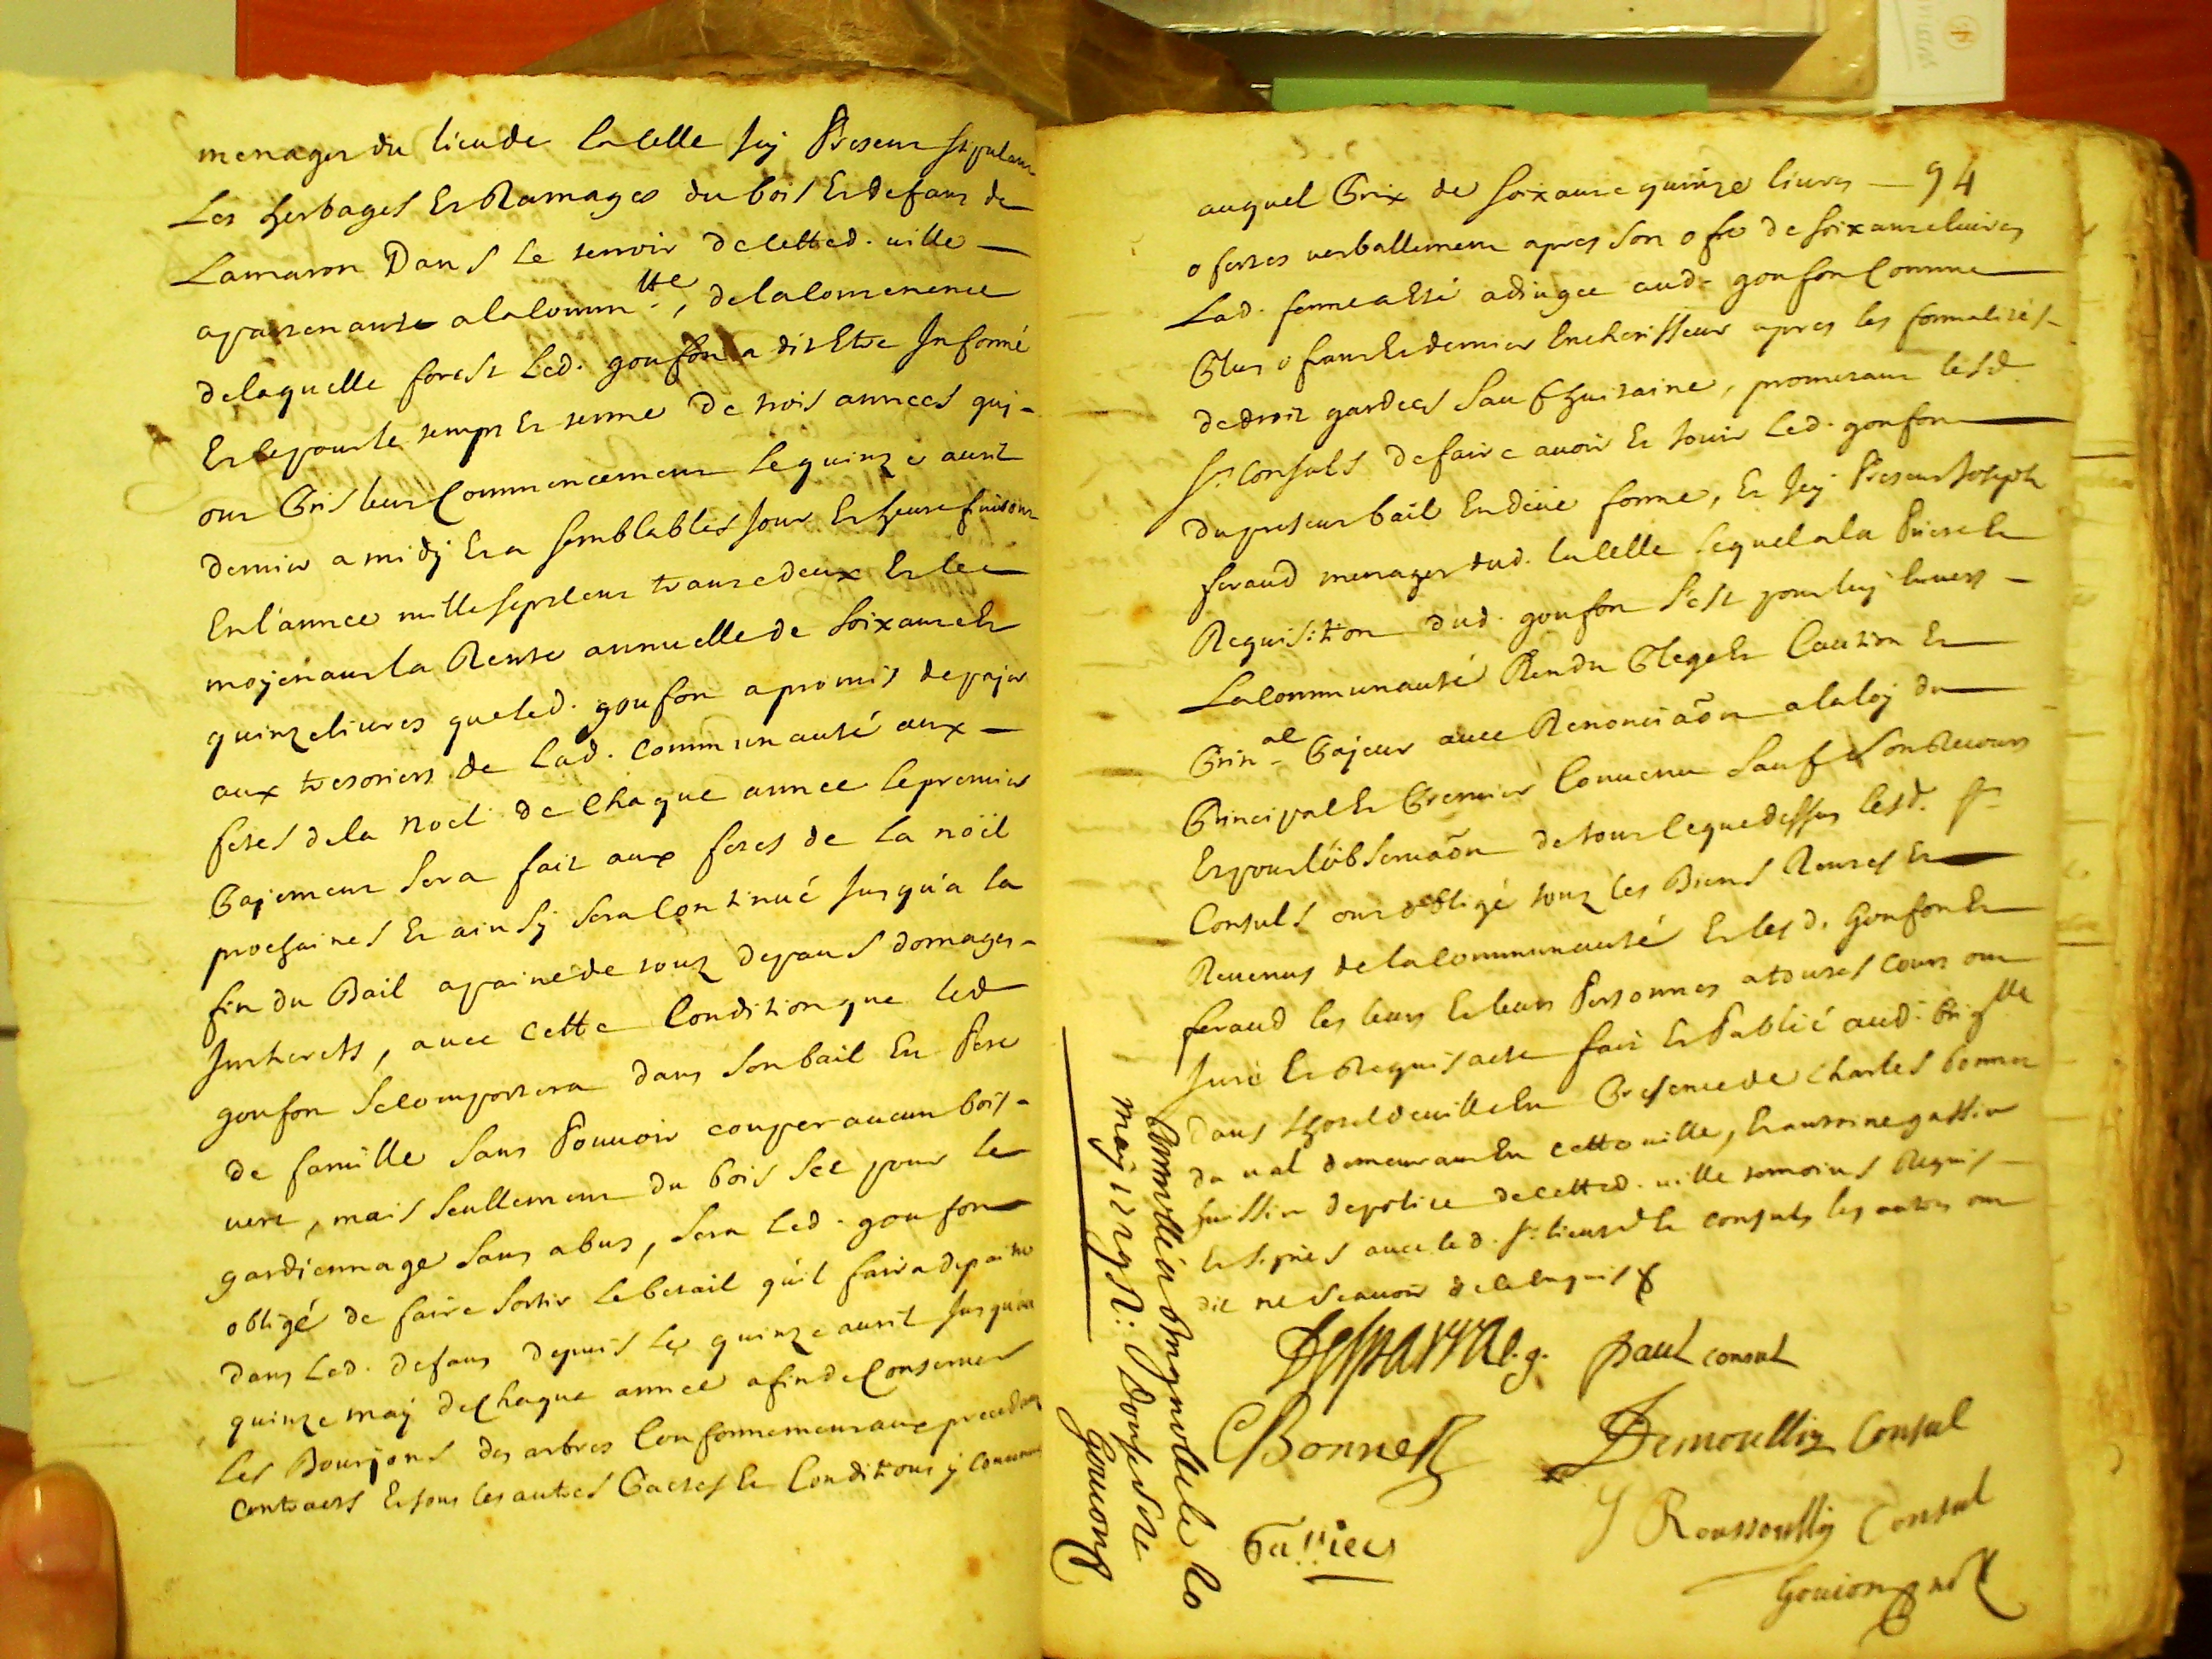 menager du lieu de la Celle Icy Present stipulant
Les herbages Et Ramages du bois Et defans de
Lamaron Dans le terroir de cetted. ville
apartenante a la Commtte, de la Contenence
de laquelle forest Led. gouffon a dit Etre Informé
Et ce pour le temps Et terme de trois années qui
ont Pris leur Commencement le quinze avril
dernier a midy Et a semblables jour Et heure finiront
En l'année mille sept cent trante deux Et ce
moyenant la Rente annuelle de soixante Et
quinze livres que led. gouffon a promis de payer
aux tresoriers de Lad. communauté aux
fetes de la Noel de Chaque année le premier
Payement sera fait aux fetes de la noël
prochaines Et ainsy sera Continué Jusqu'a la
fin du Bail a paine de tous depans domages
Interets, avec cette Condition que led
gouffon se comportera dans son bail En Pere
de famille sans Pouvoir couper aucun bois
vert, mais seullement du bois sec pour le
gardiennage sans abus, sera Led. gouffon
obligé de faire sortir le betail qu'il faira depaitre
dans Led. defans depuis le quinze avril Jusqu'au
quinze may de Chaque année afin de Conserver
les Bourjons des arbres Conformement aux precedans
contracts Et sous les autres Pactes Et Conditions y Contenues
94
auquel Prix de soixante quinze livres
ofertes verballement apres son ofre de soixante livres
Lad. ferme a Eté adjugée aud. gouffon Comme
Plus ofrant Et dernier Encherisseur apres les formalités
de droit gardées sauf huitaine, prometant lesd.
srs consuls de faire avoir Et jouir Led. gouffon
du present bail En deüe forme, Et Icy Present Joseph
feraud menager dud. la Celle lequel a la Priere Et
Requisition dud. gouffon s'est pour luy Envers
La Communauté Rendu Plege Et Caution Et
Prinal Payeur avec Renonciaõn a la loy du
Principal Et Premier Convenu sauf son Recours
Et pour l'observaõn de tout ce que dessus lesd. srs
Consuls ont obligé tous les Biens Rentes Et
Revenus de la Communauté Et lesd. Gouffon Et
feraud les leurs Et leurs Personnes a toutes cours ont
Juré Et Requis acte fait Et Publié aud. Brigolle
dans l'hotel de ville En Presence de Charles bonnet
du val demeurant En cette ville, Et antoine gassier
huissier de police de cetted. ville temoins Requis
Et signés avec led. sr lieut. Et consuls les autres ont
dit ne scavoir de ce Enquis
Desparra l. g. paul consul
CBonnet Demoullin Consul
J Roussoullin Consul
Gassier
Goujon not
Controllé a Brignolle le 20
may 1729 R:
Goujon